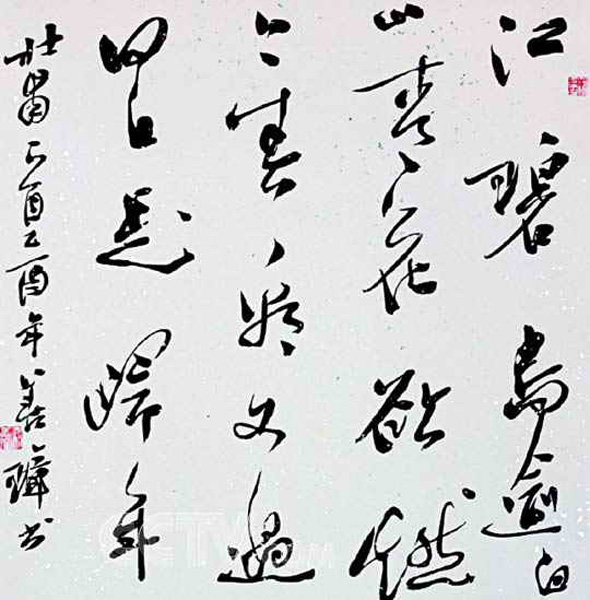 江碧鳥逾白
山青花欲燃
今春看又過
何日是歸年
杜甫 乙酉年善璋书
CCTV.COM